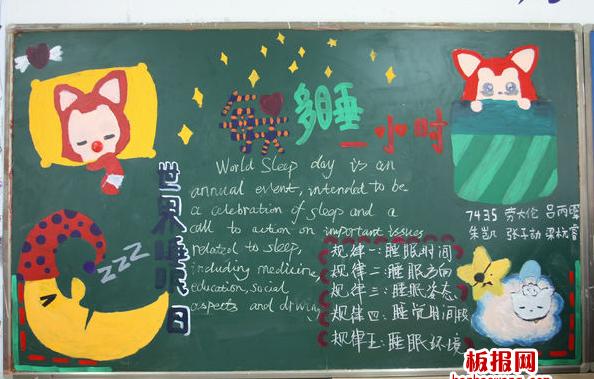 每天多睡一小时
世界睡眠日
World Sleep day is an
annual event, intended to be
a celebration of sleep and a
call to action on important issues
related to sleep,
including medicine,
education, social
aspects and driving
zzz
规律一:睡眠时间
规律二:睡眠方向
规律三:睡眠姿态
规律四:睡觉时间段
规律五:睡眠环境
7435 劳大伦 吕丙
朱凯 张子劼
板报网